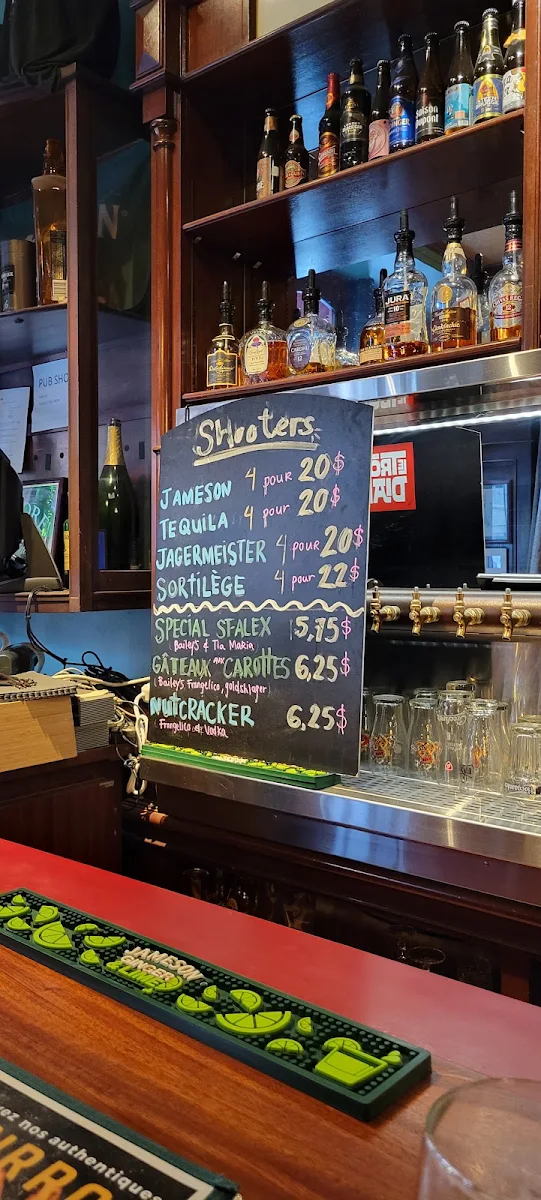 Shooters
JAMESON 4 pour 20$
TEQUILA 4 pour 20$
JAGERMEISTER 4 pour 20$
SORTILÈGE 4 pour 22$
SPECIAL ST-ALEX 5,75$
Baileys & Tia Maria
GÂTEAUX AUX CAROTTES 6,25$
Baileys, Frangelico, goldshlager
NUTCRACKER 6,25$
Frangelico et Vodka
JURA
PUB
JAMESON
GINGER
LIME
nos authentiques